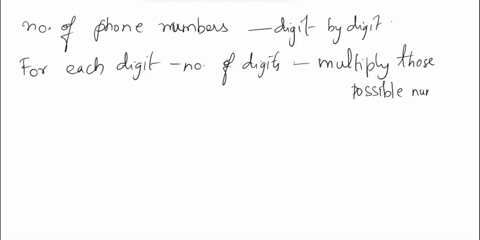 no. of phone numbers — digit by digit.
For each digit – no. of digits — multiply those
possible nu